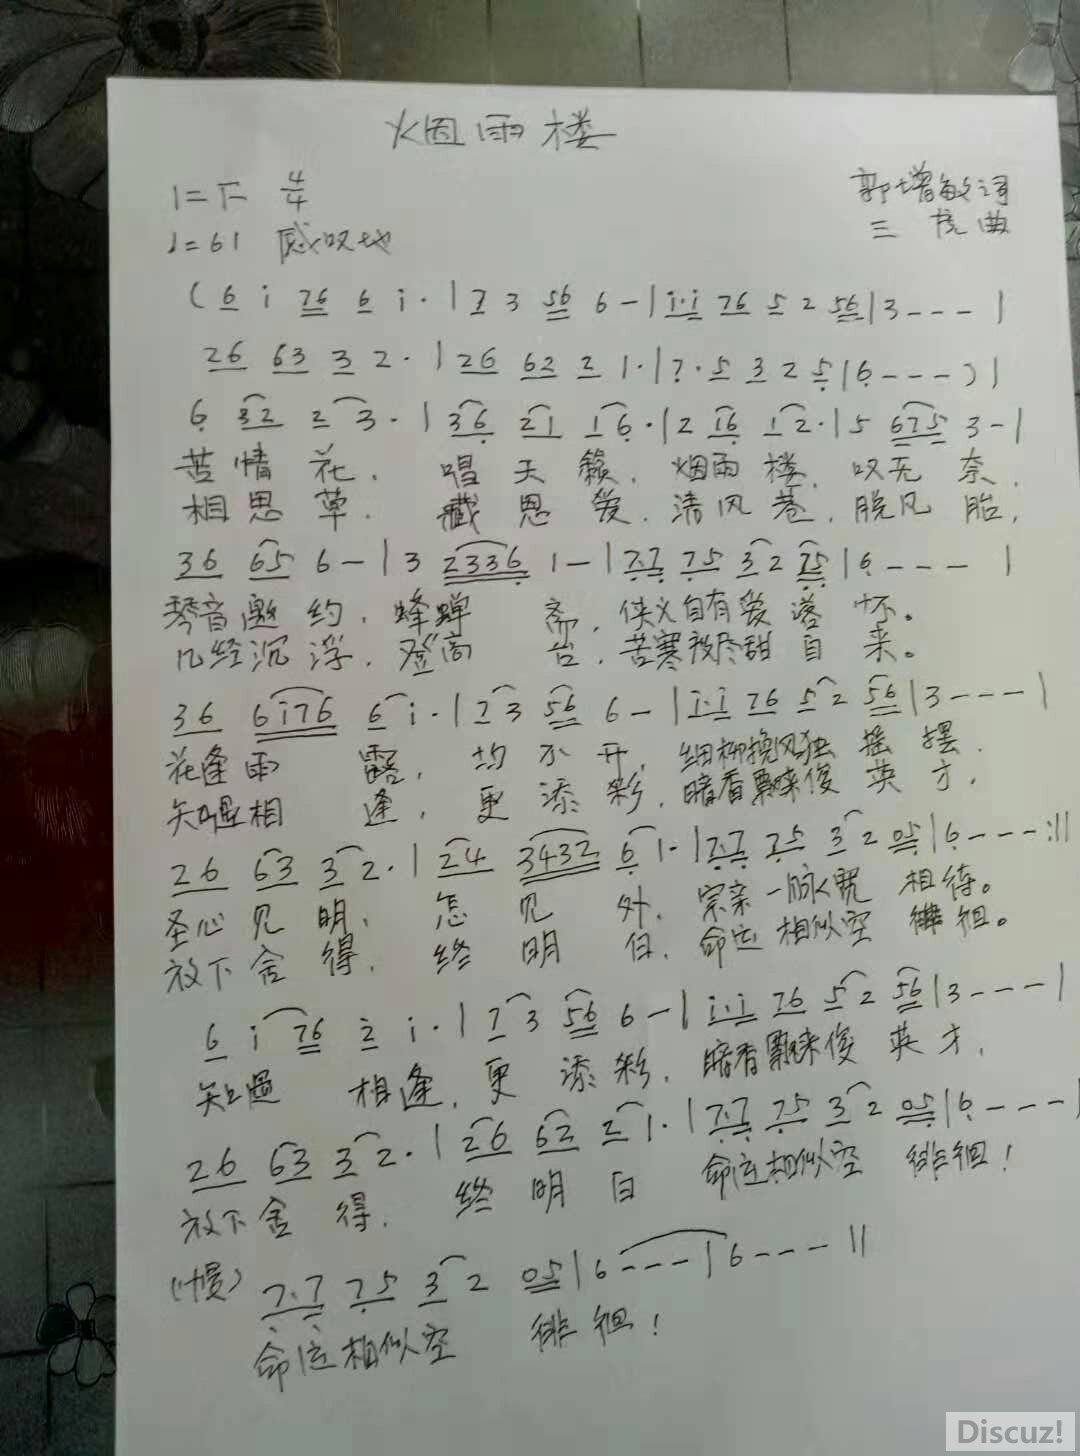 烟雨楼
1=F 4/4
郭增敏词
♩=61 感叹地
三 曲
( 6 i 76 6 i · | 7 3 56 6 – | i·i 76 5 2 56 | 3 - - - |
26 63 3 2 · | 26 62 2 1 · | 7 · 5 3 2 5 | 6 - - - ) |
6 32 2 3 · | 36 21 1 6 · | 2 16 1 2 · | 5 675 3 – |
苦情花, 唱天籁, 烟雨楼, 叹无奈,
相思草, 藏思爱, 清风巷, 脱凡胎,
36 65 6 – | 3 2336 1 – | 7·7 75 3 2 75 | 6 - - - |
琴音邀约, 蜂蝉斋, 侠义自有爱落怀。
几经沉浮, 登高台, 苦寒尽甜自来。
36 6i76 6 i · | 7 3 56 6 – | i·i 76 5 2 56 | 3 - - - |
花逢雨露, 均不开, 细柳挽风独摇摆,
知遇相逢, 更添彩, 暗香飘来俊英才,
26 63 3 2 · | 24 3432 6 1 · | 7·7 75 3 2 05 | 6 - - - :||
圣心见明, 怎见外, 宗亲一脉相待。
放下舍得, 终明白, 命运相似空徘徊。
6 i 76 2 i · | 7 3 56 6 – | i·i 76 5 2 56 | 3 - - - |
知遇相逢, 更添彩, 暗香飘来俊英才,
26 63 3 2 · | 26 62 2 1 · | 7·7 75 3 2 05 | 6 - - - |
放下舍得, 终明白 命运相似空徘徊!
(慢) 7·7 75 3 2 05 | 6 - - - | 6 - - - ||
命运相似空徘徊!
Discuz!